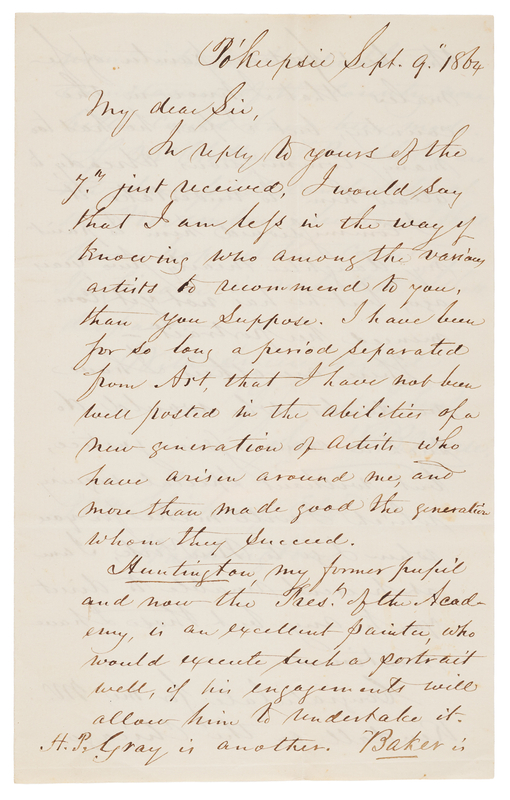 Po'keepsie Sept. 9." 1864
My dear Sir,
In reply to yours of the
7.th just received, I would say
that I am less in the way of
knowing who among the various
artists to recommend to you,
than you suppose. I have been
for so long a period separated
from Art, that I have not been
well posted in the abilities of a
new generation of artists who
have arisen around me, and
more than made good the generation
whom they succeed.
Huntington, my former pupil
and now the Pres.t of the Acad-
emy, is an excellent painter, who
would execute such a portrait
well, if his engagements will
allow him to undertake it.
H. P. Gray is another. Baker is